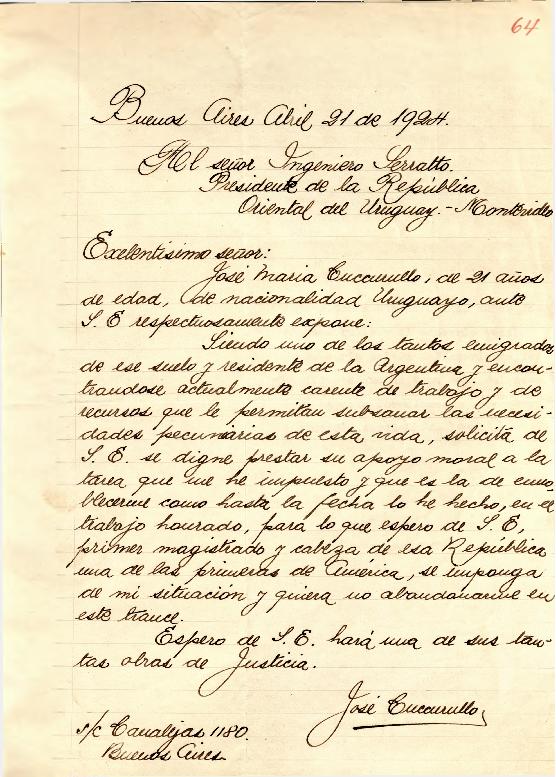 64
Buenos Aires Abril 21 de 1924.
Al señor Ingeniero Serratto.
Presidente de la República
Oriental del Uruguay.- Montevideo
Exelentísimo señor:
José Maria Cuccurullo, de 21 años
de edad, de nacionalidad Uruguayo, ante
S. E respectuosamente expone:
Siendo uno de los tantos emigrados
de ese suelo y residente de la Argentina y encon-
trandose actualmente carente de trabajo y de
recursos que le permitan subsanar las necesi-
dades pecuniarias de esta vida, solicita de
S. E. se digne prestar su apoyo moral a la
tarea que me he impuesto y que es la de enno
blecerme como hasta la fecha lo he hecho, en el
trabajo honrado, para lo que espero de S. E,
primer magistrado y cabeza de esa República
una de las primeras de América, se imponga
de mi situación y quiera no abandonarme en
este trance.
Espero de S. E. hará una de sus tan-
tas obras de Justicia.
José Cuccurullo
s/c Canalejas 1180.
Buenos Aires